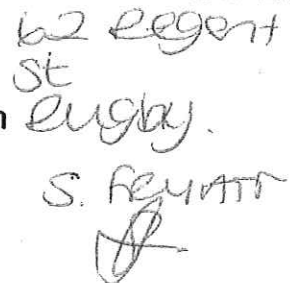 62 Regent
St
n Rugby.
S.